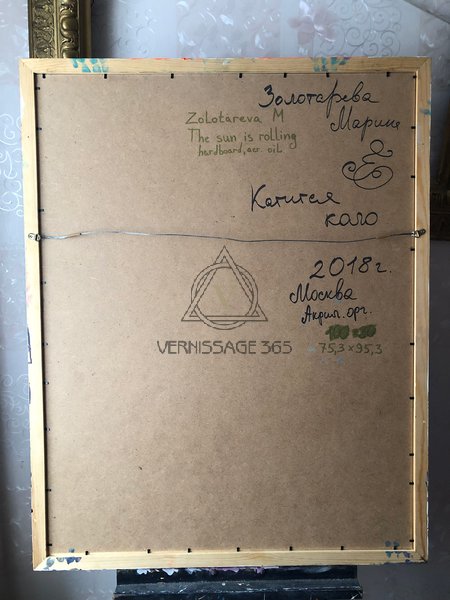 Золотарева
Марина
Zolotareva M
The sun is rolling
hardboard, acr. oil
Катится
коло
2018 г.
Москва
Акрил. орг.
100 x 80
75,3 x 95,3
VERNISSAGE 365